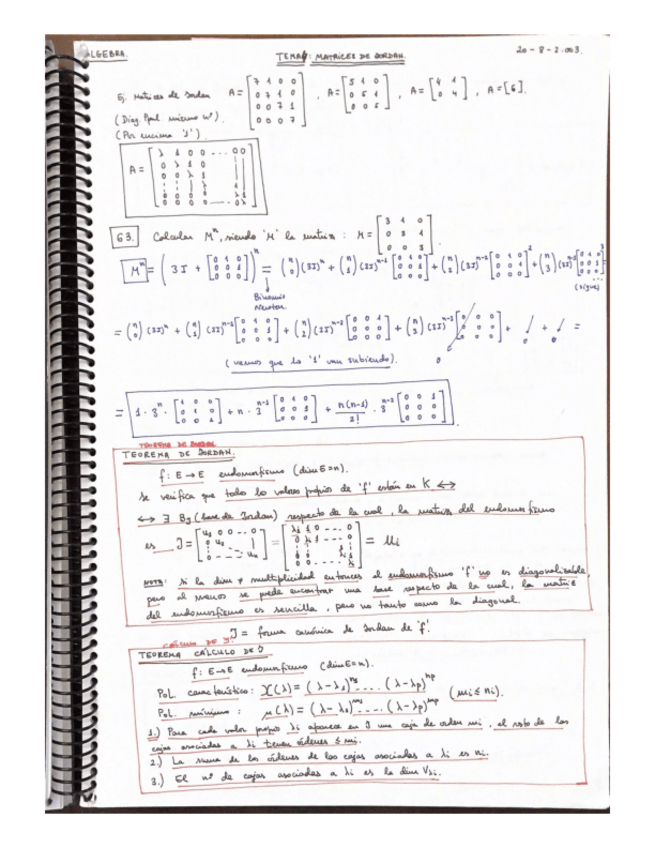 ALGEBRA. TEMA: MATRICES DE JORDAN. 20-8-2.003.
Ej. Matrices de Jordan A = [7 1 0 0; 0 7 1 0; 0 0 7 1; 0 0 0 7] , A = [5 1 0; 0 5 1; 0 0 5] , A = [4 1; 0 4] , A = [6].
(Diag. Ppal mismo nº)
(Por encima '1')
A = [λ 1 0 0 ... 0 0; 0 λ 1 0; 0 0 λ 1; λ 1; 0 0 0 0 ... 0 λ]
63. Calcular Mⁿ, siendo 'M' la matriz : M = [3 1 0; 0 3 1; 0 0 3].
Mⁿ = (3I + [0 1 0; 0 0 1; 0 0 0])ⁿ = (n 0)(3I)ⁿ + (n 1)(3I)ⁿ⁻¹ [0 1 0; 0 0 1; 0 0 0] + (n 2)(3I)ⁿ⁻² [0 1 0; 0 0 1; 0 0 0]² + (n 3)(3I)ⁿ⁻³ [0 1 0; 0 0 1; 0 0 0]³ ...
Binomio
Newton
(sigue)
= (n 0)(3I)ⁿ + (n 1)(3I)ⁿ⁻¹ [0 1 0; 0 0 1; 0 0 0] + (n 2)(3I)ⁿ⁻² [0 0 1; 0 0 0; 0 0 0] + (n 3)(3I)ⁿ⁻³ [0 0 0; 0 0 0; 0 0 0] + + =
0 0 0
(vemos que los '1' van subiendo).
= 1·3ⁿ · [1 0 0; 0 1 0; 0 0 1] + n·3ⁿ⁻¹ [0 1 0; 0 0 1; 0 0 0] + n(n-1)/2! · 3ⁿ⁻² [0 0 1; 0 0 0; 0 0 0].
TEOREMA DE JORDAN
TEOREMA DE JORDAN.
f: E → E endomorfismo (dim E = n).
Se verifica que todos los valores propios de 'f' están en K ↔
↔ ∃ By (base de Jordan) respecto de la cual, la matriz del endomorfismo
es J =
NOTA: Si la dim ≠ multiplicidad entonces el endomorfismo 'f' no es diagonalizable,
pero al menos se puede encontrar una base respecto de la cual, la matriz
del endomorfismo es sencilla, pero no tanto como la diagonal.
J = forma canónica de Jordan de 'f'.
CÁLCULO DE J
TEOREMA CÁLCULO DE J
f: E → E endomorfismo (dim E = n).
Pol. característico: X(λ) = (λ-λ₁)ⁿ¹ .... (λ-λp)ⁿᵖ (mi ≤ ni).
Pol. mínimo : μ(λ) = (λ-λ₁)ᵐ¹ .... (λ-λp)ᵐᵖ
1.) Para cada valor propio λi aparece en J una caja de orden mi, el resto de las
cajas asociadas a λi tienen órdenes ≤ mi.
2.) La suma de los órdenes de las cajas asociadas a λi es ni.
3.) El nº de cajas asociadas a λi es la dim Vλi.